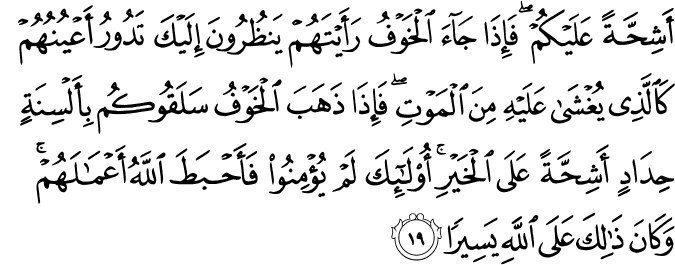 أَشِحَّةً عَلَيۡكُمۡۖ فَإِذَا جَآءَ ٱلۡخَوۡفُ رَأَيۡتَهُمۡ يَنظُرُونَ إِلَيۡكَ تَدُورُ أَعۡيُنُهُمۡ
كَٱلَّذِي يُغۡشَىٰ عَلَيۡهِ مِنَ ٱلۡمَوۡتِۖ فَإِذَا ذَهَبَ ٱلۡخَوۡفُ سَلَقُوكُم بِأَلۡسِنَةٍ
حِدَادٍ أَشِحَّةً عَلَى ٱلۡخَيۡرِۚ أُوْلَٰٓئِكَ لَمۡ يُؤۡمِنُواْ فَأَحۡبَطَ ٱللَّهُ أَعۡمَٰلَهُمۡۚ
وَكَانَ ذَٰلِكَ عَلَى ٱللَّهِ يَسِيرٗا ١٩